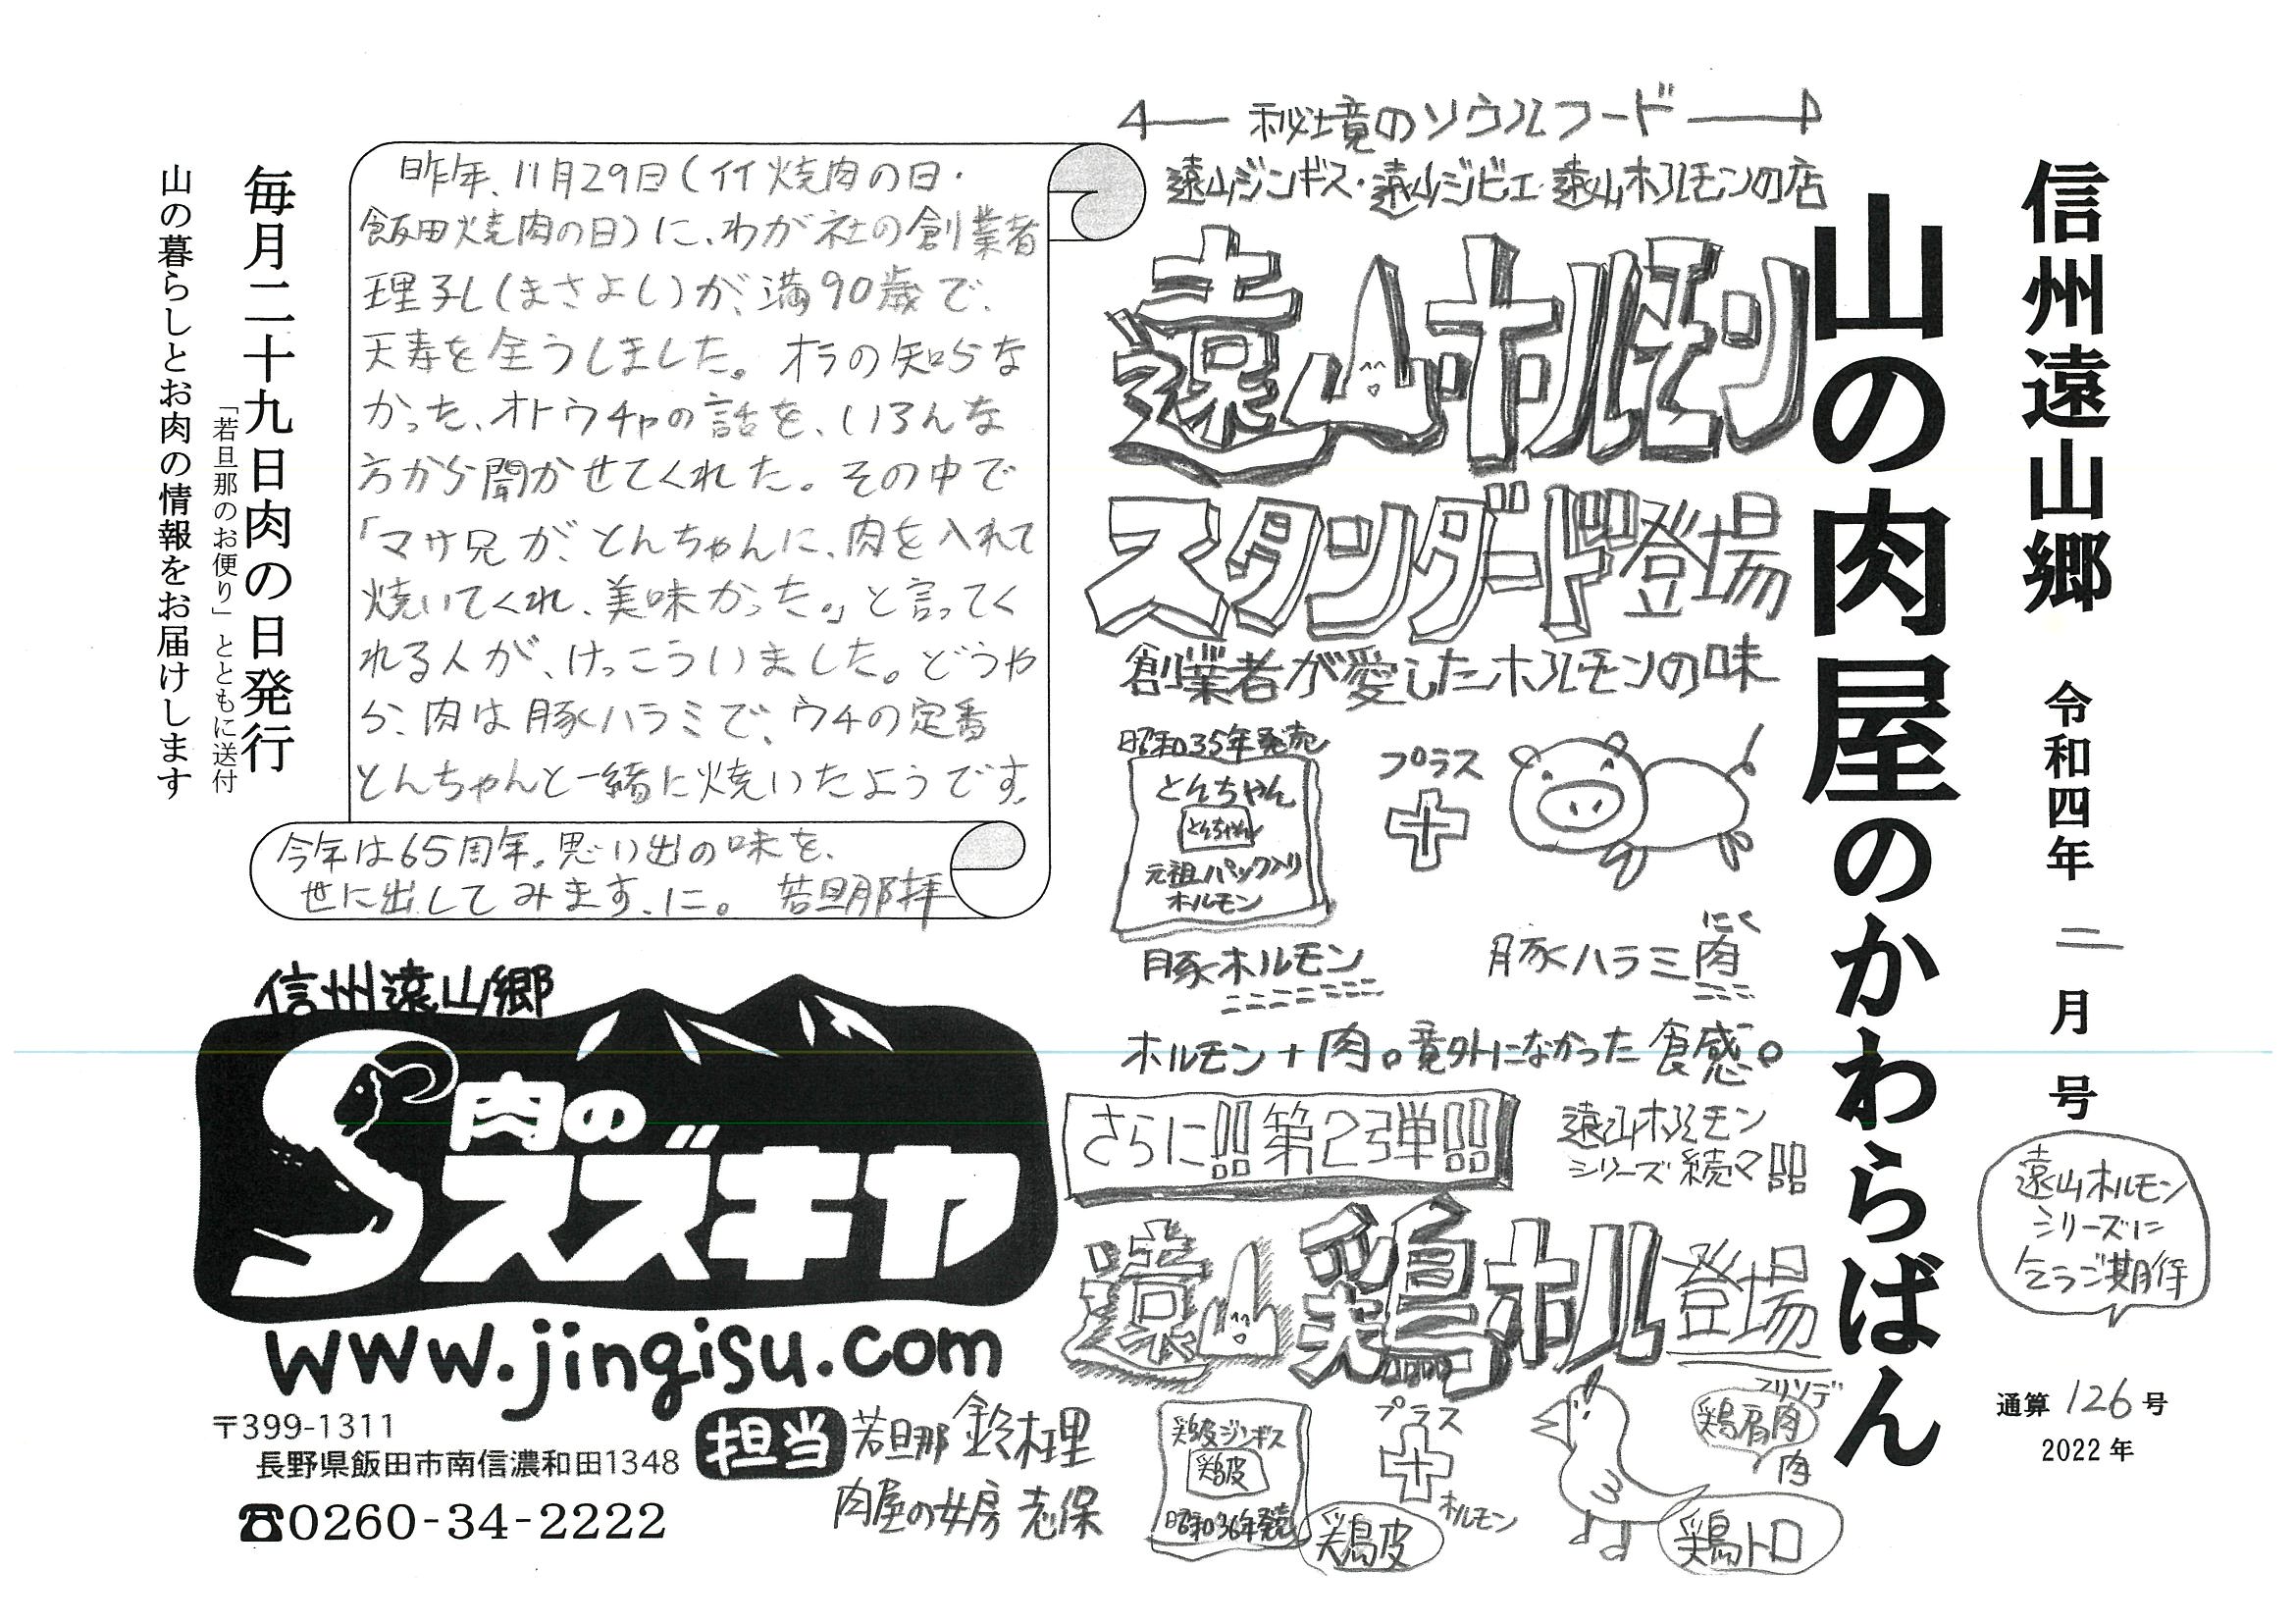 信州遠山郷
令和四年 二月号
遠山ホルモン
シリーズに
乞うご期待
通算 126号
2022年
山の肉屋のかわらばん
秘境のソウルフード
遠山ジンギス・遠山ジビエ・遠山ホルモンの店
遠山ホルモン
スタンダード登場
創業者が愛したホルモンの味
昭和35年発売
とんちゃん
とんちゃん
元祖パック入り
ホルモン
プラス
豚ホルモン
豚ハラミ肉
にく
ホルモン+肉。意外になかった食感。
さらに!!第2弾!!
遠山ホルモン
シリーズ続々!!
遠山鶏ホル登場
鶏皮ジンギス
鶏皮
昭和36年発売
鶏皮
プラス
ホルモン
フリソデ
鶏肩肉
肉
鶏トロ
昨年、11月29日(イイ焼肉の日・
飯田焼肉の日)に、わが社の創業者
理孔(まさよし)が、満90歳で、
天寿を全うしました。オラの知らな
かった、オトウチャの話を、いろんな
方から聞かせてくれた。その中で
「マサ兄が、とんちゃんに、肉を入れて
焼いてくれ、美味かった。」と言ってく
れる人が、けっこういました。どうや
ら、肉は豚ハラミで、ウチの定番
とんちゃんと一緒に焼いたようです。
今年は65周年。思い出の味を、
世に出してみます、に。 若旦那拝
毎月二十九日肉の日発行
「若旦那のお便り」とともに送付
山の暮らしとお肉の情報をお届けします
信州遠山郷
肉の
スズキヤ
www.jingisu.com
〒399-1311
長野県飯田市南信濃和田1348
☎0260-34-2222
担当 若旦那 鈴木理
肉屋の女房 志保